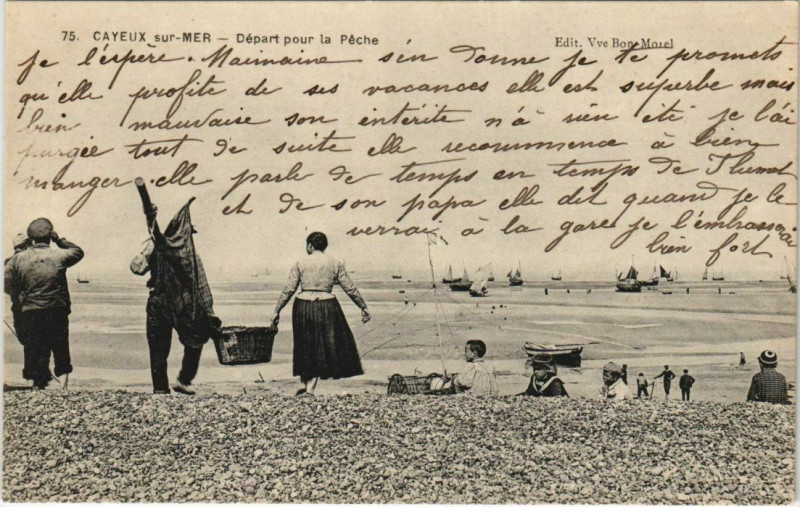 75. CAYEUX sur-MER — Départ pour la Pêche
Edit. Vve Bon-Motel
je l'espère. Maimaine s'en donne je te promets
qu'elle profite de ses vacances elle est superbe mais
bien mauvaise son entérite n'a rien été je l'ai
purgée tout de suite elle recommence à bien
manger. elle parle de temps en temps de
et de son papa elle dit quand je le
verrai à la gare je l'embrasserai
bien fort